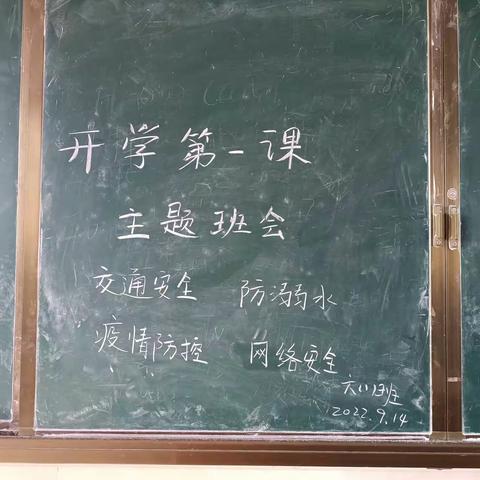 开学第一课
主题班会
交通安全 防溺水
疫情防控 网络安全
六(1)班
2022.9.14